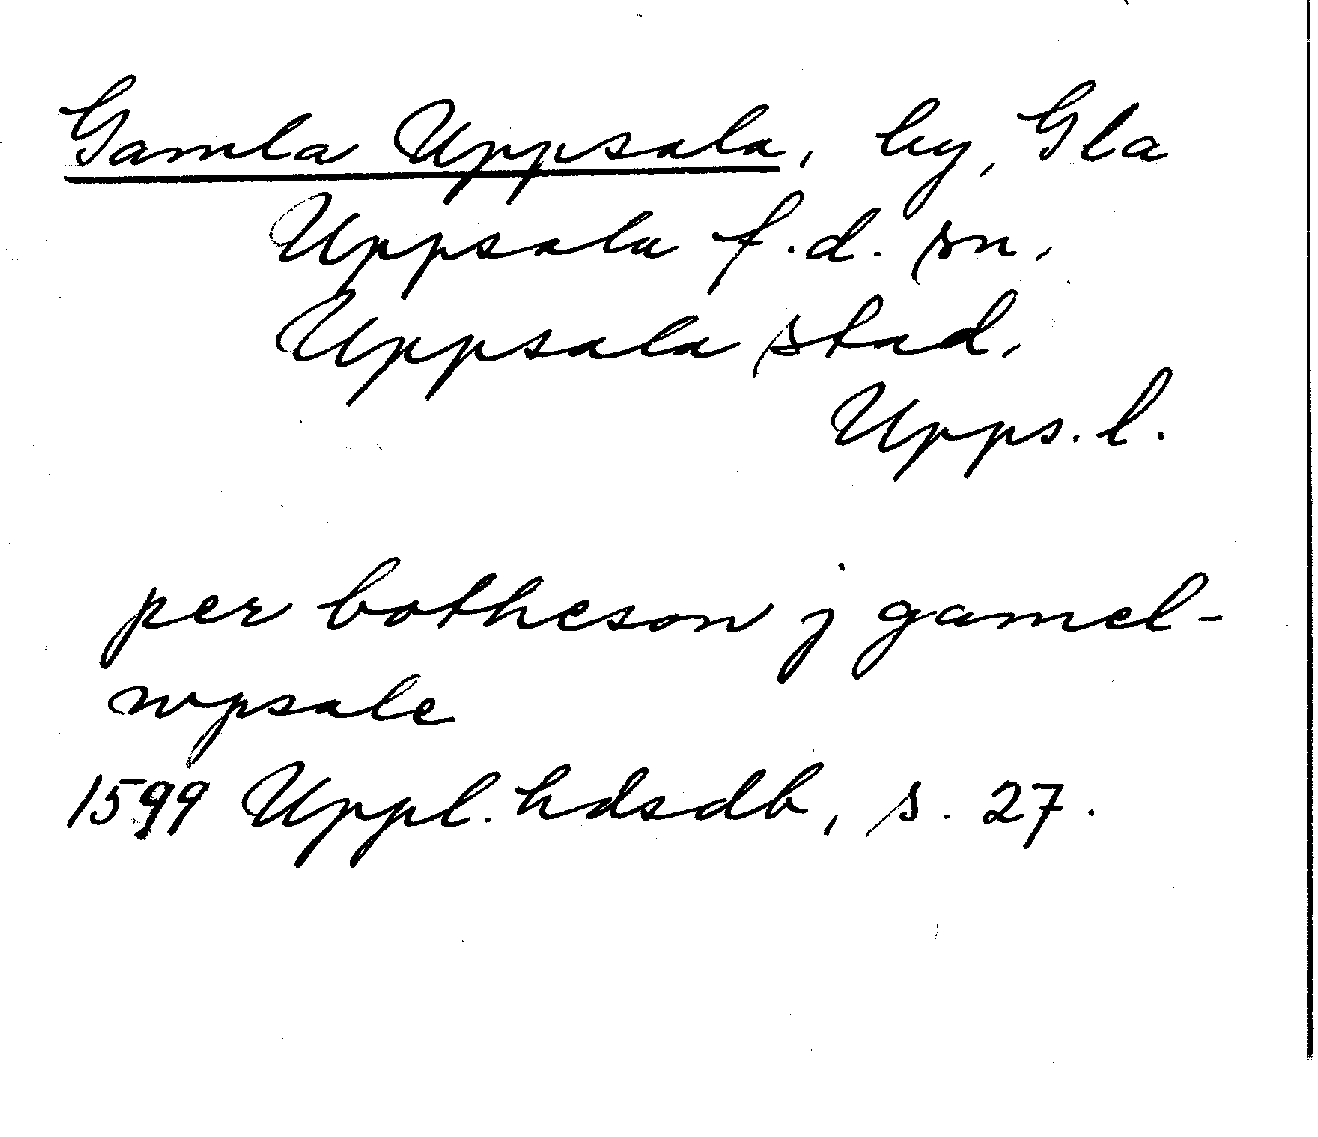 Gamla Uppsala, by, Gla
Uppsala f.d. sn,
Uppsala stad,
Upps. l.
per botheson j gamel-
wpsale
1599 Uppl. hdsdb, s. 27.